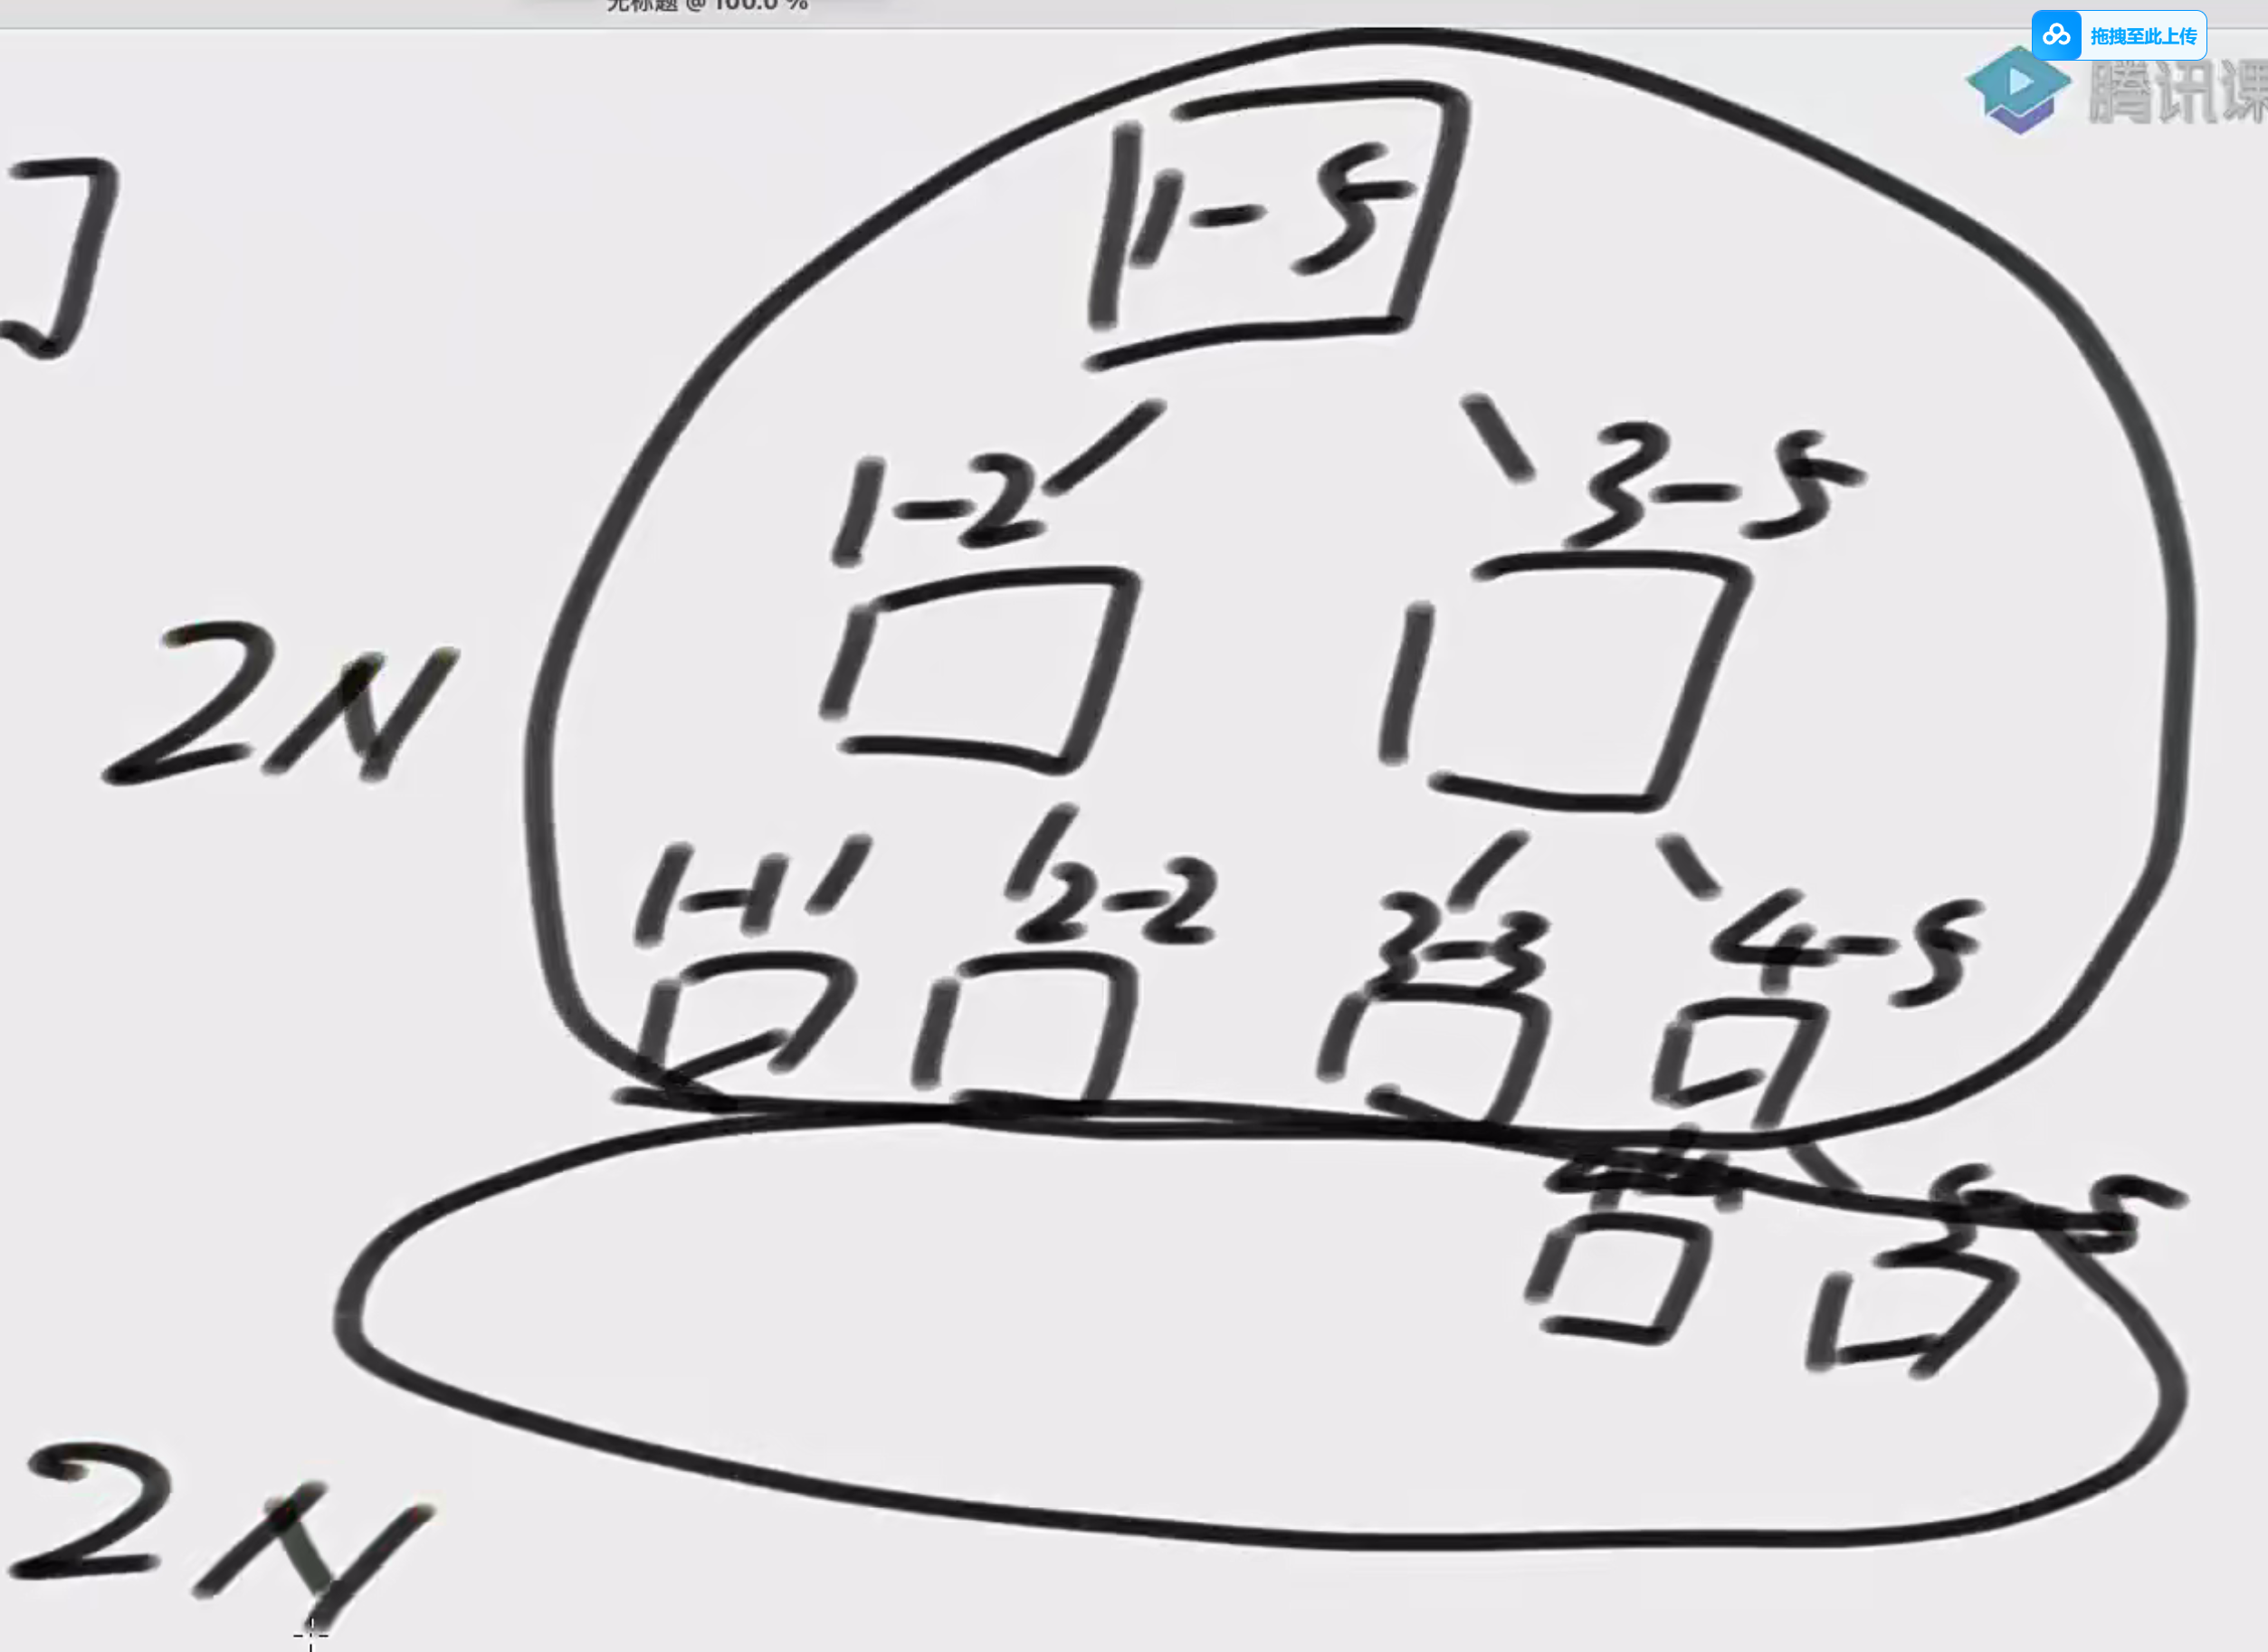 无标题 @ 100.0 %
拖拽至此上传
腾讯课
1-5
1-2 3-5
2N
1-1 2-2 3-3 4-5
4-4 5-5
2N